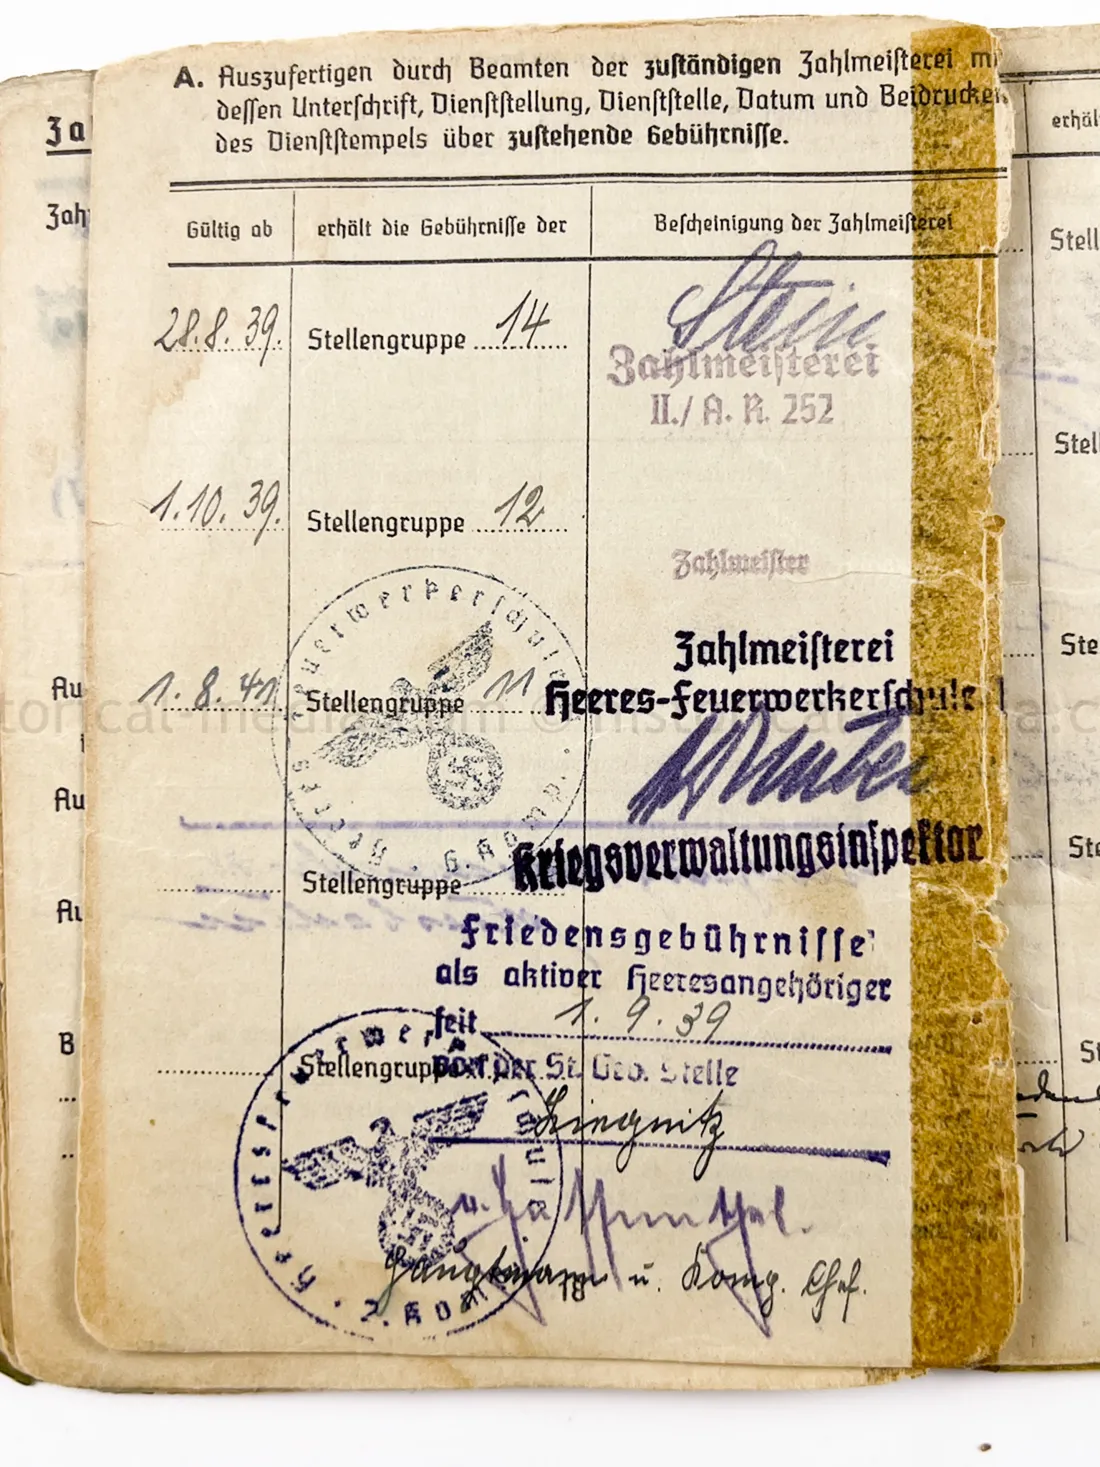 A. Auszufertigen durch Beamten der zuständigen Zahlmeisterei mi
dessen Unterschrift, Dienststellung, Dienststelle, Datum und Beidrucken
des Dienststempels über zustehende Gebührnisse.
Gültig ab
erhält die Gebührnisse der
Bescheinigung der Zahlmeisterei
28.8.39.
Stellengruppe 14
Stein
Zahlmeisterei
II./ A. R. 252
1.10.39.
Stellengruppe 12
Zahlmeister
Zahlmeisterei
1.8.41
Stellengruppe 11
Heeres-Feuerwerkerschule I
Heeres-Feuerwerkerschule
6. Komp.
Kriegsverwaltungsinspektor
Stellengruppe
Friedensgebührnisse
als aktiver Heeresangehöriger
seit 1.9.39
Stellengruppe
der St. Geb. Stelle
Liegnitz
Hauptmann u. Komp. Chef.
Za
Zah
Au
Au
Au
B
erhäl
Stell
Stell
Ste
Ste
St